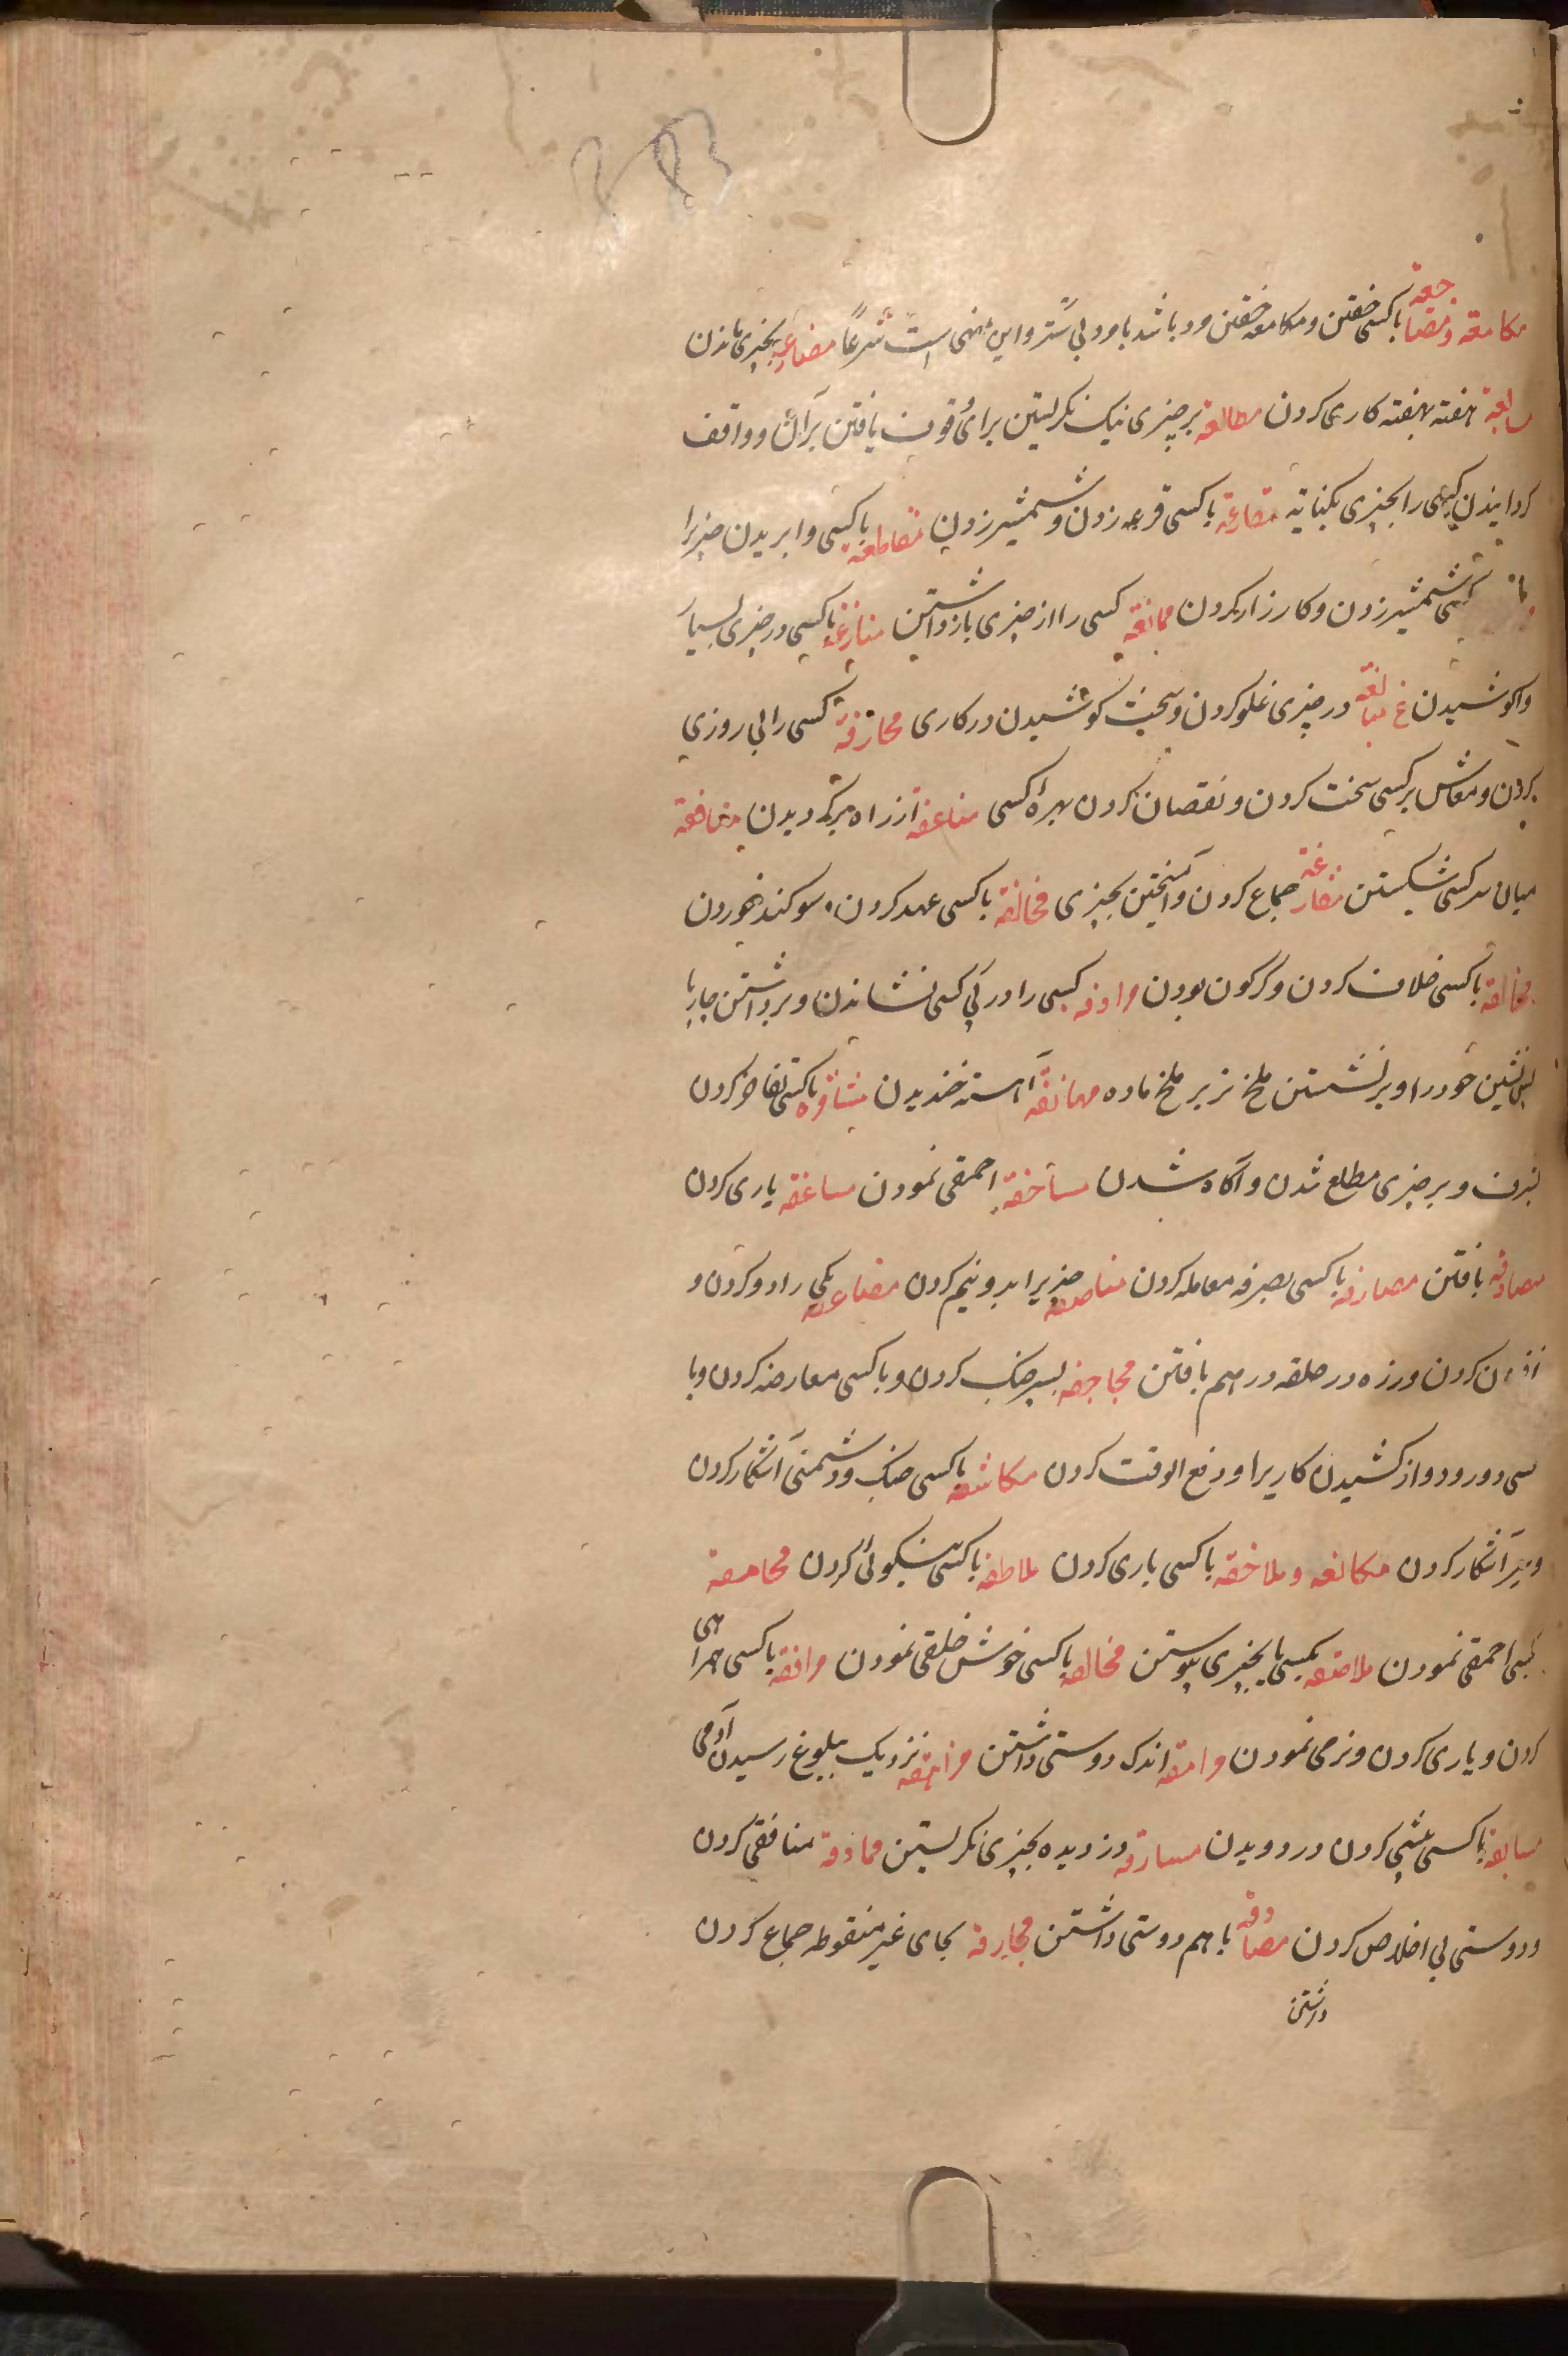 مکامعة و مضاجعة باکسی خفتن و مکامعه خفتن مرد باشد با مرد بی ستر و این منهی است شرعاً مضارعة بچیزی ماندن
هفته بهفته کاری کردن مطالعة بر چیزی نیک نگریستن برای وقوف یافتن بر آن و واقف
کردانیدن کسی را بچیزی بکنایه مقارعة باکسی قرعه زدن و شمشیر زدن مقاطعة باکسی وابریدن چیزیرا
کسی شمشیر زدن و کارزار کردن ممانعة کسی را از چیزی باز داشتن منازعة باکسی در چیزی بسیار
واکوشیدن غ مبالغة در چیزی غلو کردن و سخت کوشیدن در کاری محارفة کسی را بی روزی
کردن و معاش بر کسی سخت کردن و نقصان کردن بهره کسی از راه برکردیدن
میان سر کسی شکستن جماع کردن و آمیختن بچیزی محالفة باکسی عهد کردن و سوکند خوردن
مخالفة باکسی خلاف کردن و دگرگون بودن مرادفة کسی را در پی کسی نشاندن و برداشتن چارپا
پس نشین خود را و برنشستن ملخ نر بر ملخ ماده مهانفة آهسته خندیدن باکسی تفاخر کردن
بشرف و بر چیزی مطلع شدن و آگاه شدن مساخفة احمقی نمودن مساعفة یاری کردن
مصادفة یافتن مصارفة باکسی بصرفه معامله کردن مناصفة چیزیرا بدو نیم کردن مضاعفة یکی را دو کردن و
افزون کردن و زره دو حلقه در هم بافتن مجاحفة بسر جنک کردن و باکسی معارضه کردن و با
کسی و دور و دراز کشیدن کاریرا و دفع الوقت کردن مکاشفة باکسی جنک و دشمنی آشکار کردن
و سر آشکار کردن مکانفة و ملاحفة باکسی یاری کردن ملاطفة باکسی نیکوئی کردن محامقة
کسی احمقی نمودن ملاصقة بکسی یا بچیزی پیوستن مخالقة باکسی خوش خلقی نمودن مرافقة باکسی همراهی
کردن و یاری کردن و نرمی نمودن مرامقة اندک دوستی داشتن مراهقة نزدیک ببلوغ رسیدن آدمی
مسابقة باکسی پیشی کردن در دویدن مسارقة دزدیده بچیزی نکریستن مماذقة منافقی کردن
و دوستی بی اخلاص کردن مصادقة با هم دوستی داشتن محارقة بحای غیر منقوطه جماع کردن
داشتن